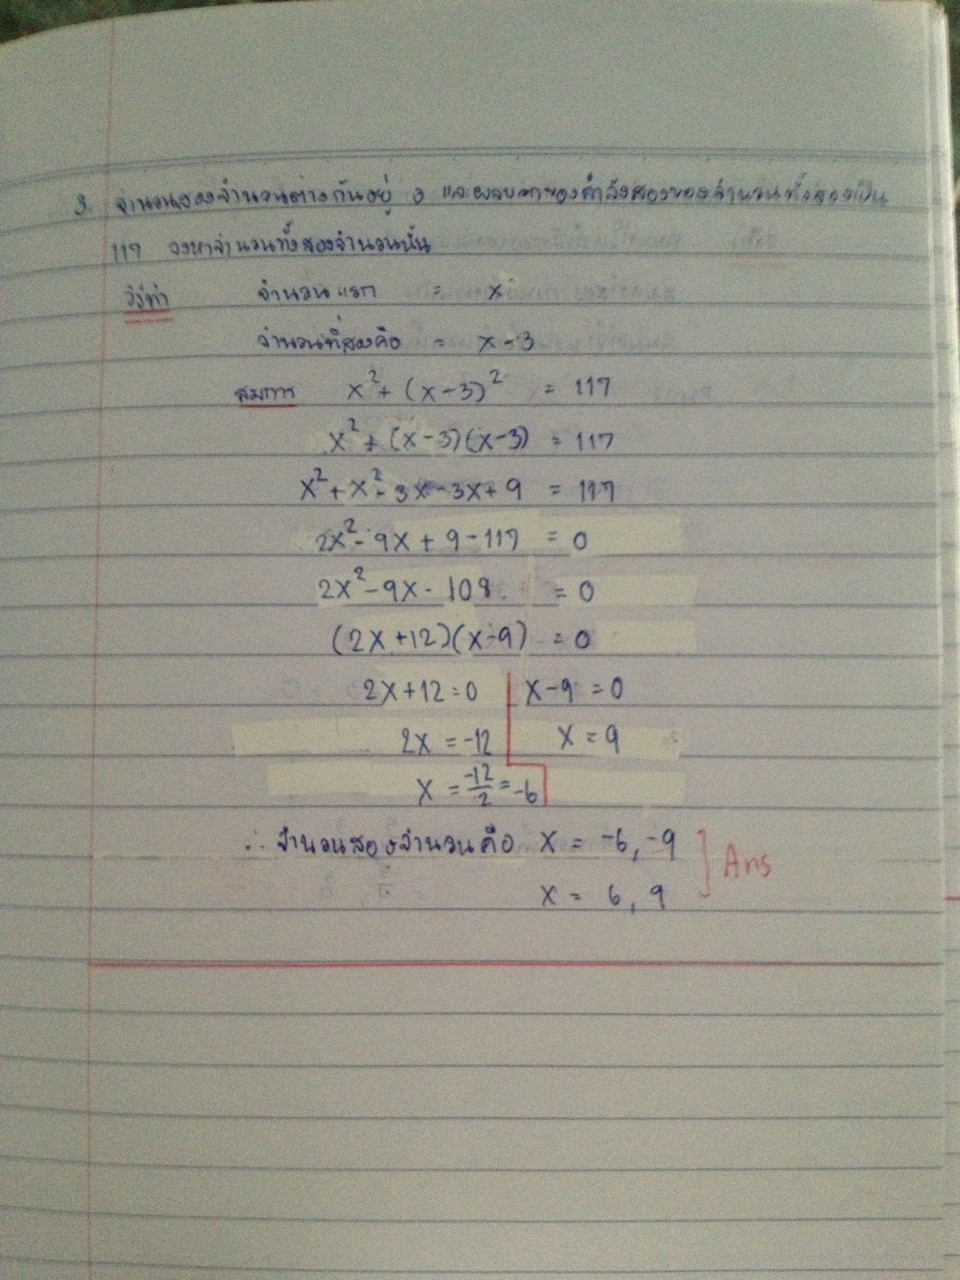 3. จำนวนสองจำนวนต่างกันอยู่ 3 และผลบวกของกำลังสองของจำนวนทั้งสองเป็น
117 จงหาจำนวนทั้งสองจำนวนนั้น
วิธีทำ จำนวนแรก = x
จำนวนที่สองคือ = x-3
สมการ x² + (x-3)² = 117
x² + (x-3)(x-3) = 117
x² + x² - 3x - 3x + 9 = 117
2x² - 9x + 9 - 117 = 0
2x² - 9x - 108 = 0
(2x+12)(x-9) = 0
2x+12 = 0 x-9 = 0
2x = -12 x = 9
x = -12/2 = -6
∴ จำนวนสองจำนวนคือ x = -6, -9
x = 6, 9
Ans